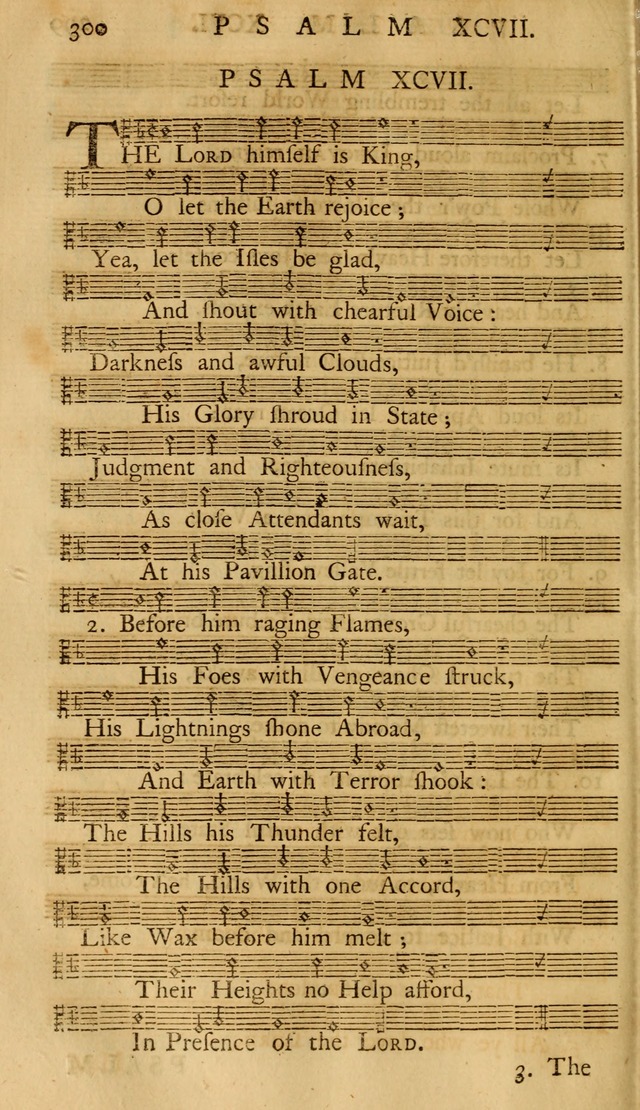 300 PSALM XCVII.
PSALM XCVII.
THE LORD himſelf is King,
O let the Earth rejoice;
Yea, let the Iſles be glad,
And ſhout with chearful Voice:
Darkneſs and awful Clouds,
His Glory ſhroud in State;
Judgment and Righteouſneſs,
As cloſe Attendants wait,
At his Pavillion Gate.
2. Before him raging Flames,
His Foes with Vengeance ſtruck,
His Lightnings ſhone Abroad,
And Earth with Terror ſhook:
The Hills his Thunder felt,
The Hills with one Accord,
Like Wax before him melt;
Their Heights no Help afford,
In Preſence of the LORD.
3. The